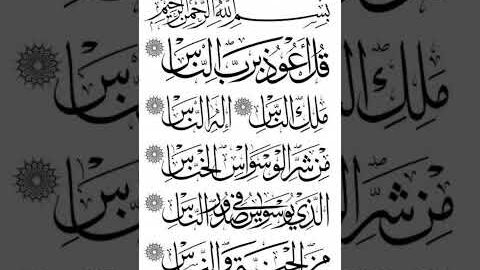 بِسْمِ اللهِ الرَّحْمٰنِ الرَّحِيْمِ
قُلْ أَعُوذُ بِرَبِّ النَّاسِ
مَلِكِ النَّاسِ إِلٰهِ النَّاسِ
مِنْ شَرِّ الْوَسْوَاسِ الْخَنَّاسِ
الَّذِي يُوَسْوِسُ فِي صُدُورِ النَّاسِ
مِنَ الْجِنَّةِ وَالنَّاسِ